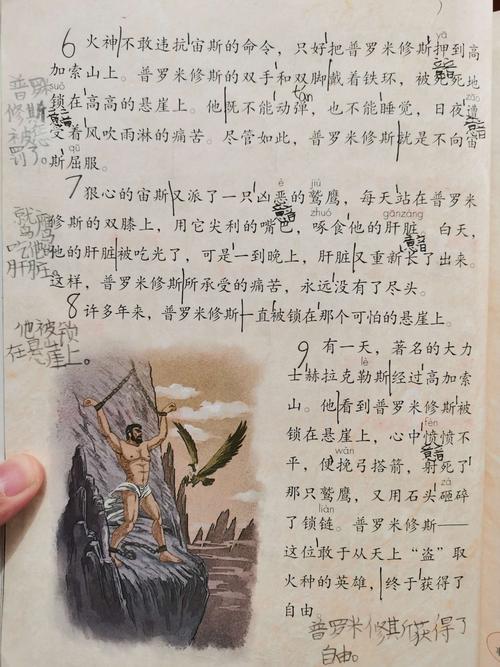 6 火神不敢违抗宙斯的命令，只好把普罗米修斯押到高
加索山上。普罗米修斯的双手和双脚戴着铁环，被死死
锁在高高的悬崖上。他既不能动弹，也不能睡觉，日夜遭
受着风吹雨淋的痛苦。尽管如此，普罗米修斯就是不向宙
斯屈服。
7 狠心的宙斯又派了一只凶恶的鹫鹰，每天站在普罗米
修斯的双膝上，用它尖利的嘴巴，啄食他的肝脏。白天，
他的肝脏被吃光了，可是一到晚上，肝脏又重新长了出来。
这样，普罗米修斯所承受的痛苦，永远没有了尽头。
8 许多年来，普罗米修斯一直被锁在那个可怕的悬崖上。
他被锁
在悬崖上。
9 有一天，著名的大力
士赫拉克勒斯经过高加索
山。他看到普罗米修斯被
锁在悬崖上，心中愤愤不
平，便挽弓搭箭，射死了
那只鹫鹰，又用石头砸碎
了锁链。普罗米修斯——
这位敢于从天上“盗”取
火种的英雄，终于获得了
自由。
普罗米修斯获得了
自由。